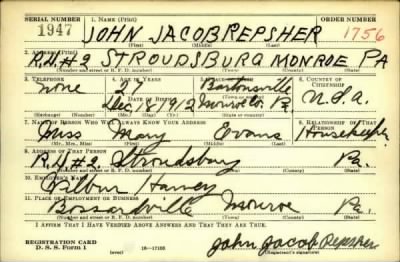 SERIAL NUMBER 1. NAME (Print) ORDER NUMBER
1947 JOHN JACOB REPSHER 1756
(First) (Middle) (Last)
2. ADDRESS (Print)
R.D.#2 STROUDSBURG MONROE PA
(Number and street or R. F. D. number) (Town) (County) (State)
3. TELEPHONE 4. AGE IN YEARS 5. PLACE OF BIRTH 6. COUNTRY OF CITIZENSHIP
None 27 Bartonsville
DATE OF BIRTH
Dec 18 1912 Monroe Co Pa. U.S.A.
(Exchange) (Number) (Mo.) (Day) (Yr.) (State or country)
7. NAME OF PERSON WHO WILL ALWAYS KNOW YOUR ADDRESS 8. RELATIONSHIP OF THAT PERSON
Miss Mary Evans Housekeeper
(Mr., Mrs., Miss) (First) (Middle) (Last)
9. ADDRESS OF THAT PERSON
R.D.#2. Stroudsburg Pa.
(Number and street or R. F. D. number) (Town) (County) (State)
10. EMPLOYER'S NAME
Wilbur Haney
11. PLACE OF EMPLOYMENT OR BUSINESS
Bossardville Monroe Pa.
(Number and street or R. F. D. number) (Town) (County) (State)
I AFFIRM THAT I HAVE VERIFIED ABOVE ANSWERS AND THAT THEY ARE TRUE.
REGISTRATION CARD
D. S. S. Form 1 (over) 16—17105 John Jacob Repsher
(Registrant's signature)